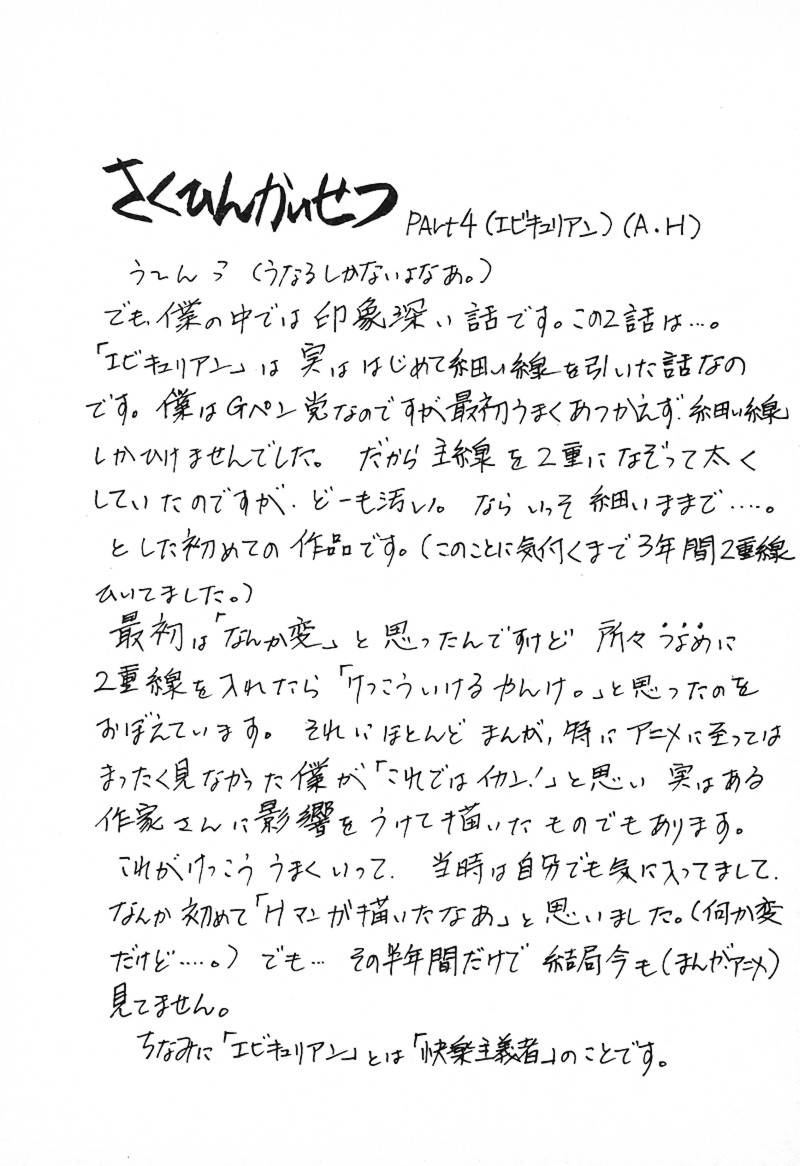 さくひんかいせつ PArt4(エピキュリアン)(A.H)
う〜んっ(うなるしかないよなあ。)
でも、僕の中では印象深い話です。この2話は…。
「エピキュリアン」は実ははじめて細い線を引いた話なの
です。僕はGペン党なのですが最初うまくあつかえず、細い線
しかひけませんでした。 だから主線を2重になぞって太く
していたのですが、どーも汚い。ならいっそ細いままで….。
とした初めての作品です。(このことに気付くまで3年間2重線
ひいてました。)
最初は「なんか変」と思ったんですけど 所々うなめに
2重線を入れたら「けっこういけるやんけ。」と思ったのを
おぼえています。 それにほとんどまんが,特にアニメに至っては
まったく見なかった僕が「これではイカン!」と思い 実はある
作家さんに影響をうけて描いたものでもあります。
これがけっこううまくいって. 当時は自分でも気に入ってまして.
なんか初めて「Hマンが描いたなあ」と思いました。(何か変
だけど…‥。) でも… その半年間だけで結局今も(まんが、アニメ)
見てません。
ちなみに「エピキュリアン」とは「快楽主義者」のことです。